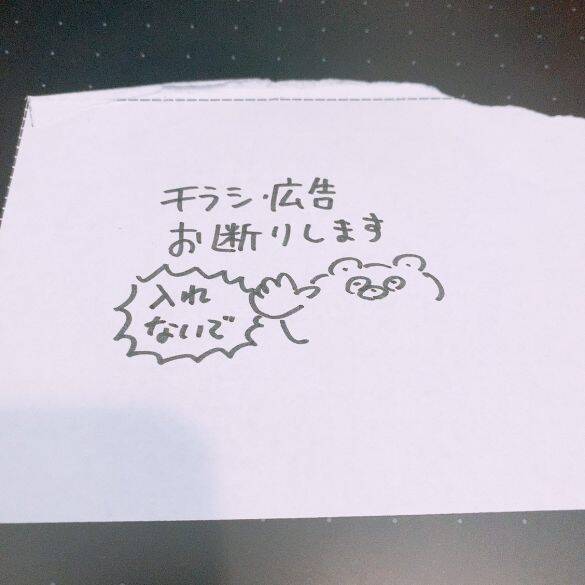 チラシ・広告
お断りします
入れ
ないで